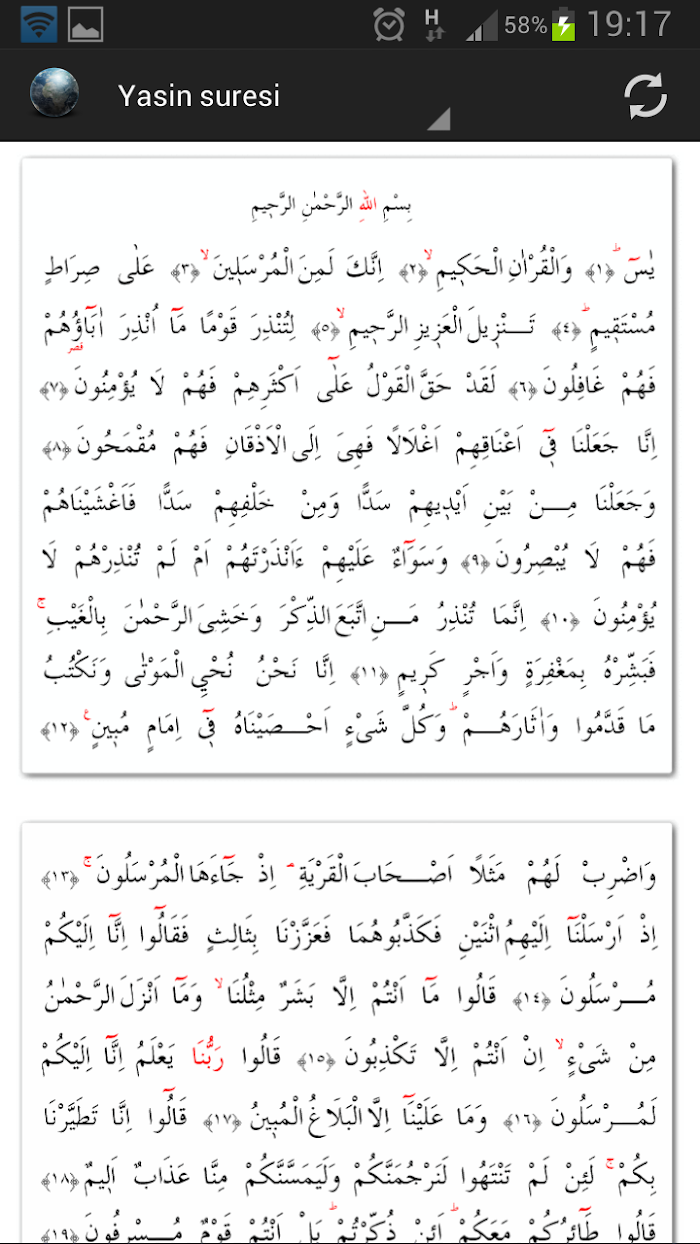 H 58% 19:17
Yasin suresi
بِسْمِ اللّٰهِ الرَّحْمٰنِ الرَّحٖيمِ
يٰسٓ ۚ ﴿١﴾ وَالْقُرْاٰنِ الْحَكٖيمِ ۙ ﴿٢﴾ اِنَّكَ لَمِنَ الْمُرْسَلٖينَ ۙ ﴿٣﴾ عَلٰى صِرَاطٍ
مُسْتَقٖيمٍ ؕ ﴿٤﴾ تَنْزٖيلَ الْعَزٖيزِ الرَّحٖيمِ ۙ ﴿٥﴾ لِتُنْذِرَ قَوْمًا مَٓا اُنْذِرَ اٰبَٓاؤُ۬هُمْ
قصر
فَهُمْ غَافِلُونَ ﴿٦﴾ لَقَدْ حَقَّ الْقَوْلُ عَلٰٓى اَكْثَرِهِمْ فَهُمْ لَا يُؤْمِنُونَ ﴿٧﴾
اِنَّا جَعَلْنَا فٖٓى اَعْنَاقِهِمْ اَغْلَالًا فَهِىَ اِلَى الْاَذْقَانِ فَهُمْ مُقْمَحُونَ ﴿٨﴾
وَجَعَلْنَا مِنْ بَيْنِ اَيْدٖيهِمْ سَدًّا وَمِنْ خَلْفِهِمْ سَدًّا فَاَغْشَيْنَاهُمْ
فَهُمْ لَا يُبْصِرُونَ ﴿٩﴾ وَسَوَٓاءٌ عَلَيْهِمْ ءَاَنْذَرْتَهُمْ اَمْ لَمْ تُنْذِرْهُمْ لَا
يُؤْمِنُونَ ﴿١٠﴾ اِنَّمَا تُنْذِرُ مَنِ اتَّبَعَ الذِّكْرَ وَخَشِىَ الرَّحْمٰنَ بِالْغَيْبِ ۚ
فَبَشِّرْهُ بِمَغْفِرَةٍ وَاَجْرٍ كَرٖيمٍ ﴿١١﴾ اِنَّا نَحْنُ نُحْيِ الْمَوْتٰى وَنَكْتُبُ
مَا قَدَّمُوا وَاٰثَارَهُمْ ؕ وَكُلَّ شَىْءٍ اَحْصَيْنَاهُ فٖٓى اِمَامٍ مُبٖينٍ ع ﴿١٢﴾
وَاضْرِبْ لَهُمْ مَثَلًا اَصْحَابَ الْقَرْيَةِ ۘ اِذْ جَٓاءَهَا الْمُرْسَلُونَ ۚ ﴿١٣﴾
اِذْ اَرْسَلْنَٓا اِلَيْهِمُ اثْنَيْنِ فَكَذَّبُوهُمَا فَعَزَّزْنَا بِثَالِثٍ فَقَالُٓوا اِنَّٓا اِلَيْكُمْ
مُرْسَلُونَ ﴿١٤﴾ قَالُوا مَٓا اَنْتُمْ اِلَّا بَشَرٌ مِثْلُنَا ۙ وَمَٓا اَنْزَلَ الرَّحْمٰنُ
مِنْ شَىْءٍ ۙ اِنْ اَنْتُمْ اِلَّا تَكْذِبُونَ ﴿١٥﴾ قَالُوا رَبُّنَا يَعْلَمُ اِنَّٓا اِلَيْكُمْ
لَمُرْسَلُونَ ﴿١٦﴾ وَمَا عَلَيْنَٓا اِلَّا الْبَلَاغُ الْمُبٖينُ ﴿١٧﴾ قَالُٓوا اِنَّا تَطَيَّرْنَا
بِكُمْ ۚ لَئِنْ لَمْ تَنْتَهُوا لَنَرْجُمَنَّكُمْ وَلَيَمَسَّنَّكُمْ مِنَّا عَذَابٌ اَلٖيمٌ ﴿١٨﴾
قَالُوا طَٓائِرُكُمْ مَعَكُمْ ؕ اَئِنْ ذُكِّرْتُمْ ؕ بَلْ اَنْتُمْ قَوْمٌ مُسْرِفُونَ ﴿١٩﴾